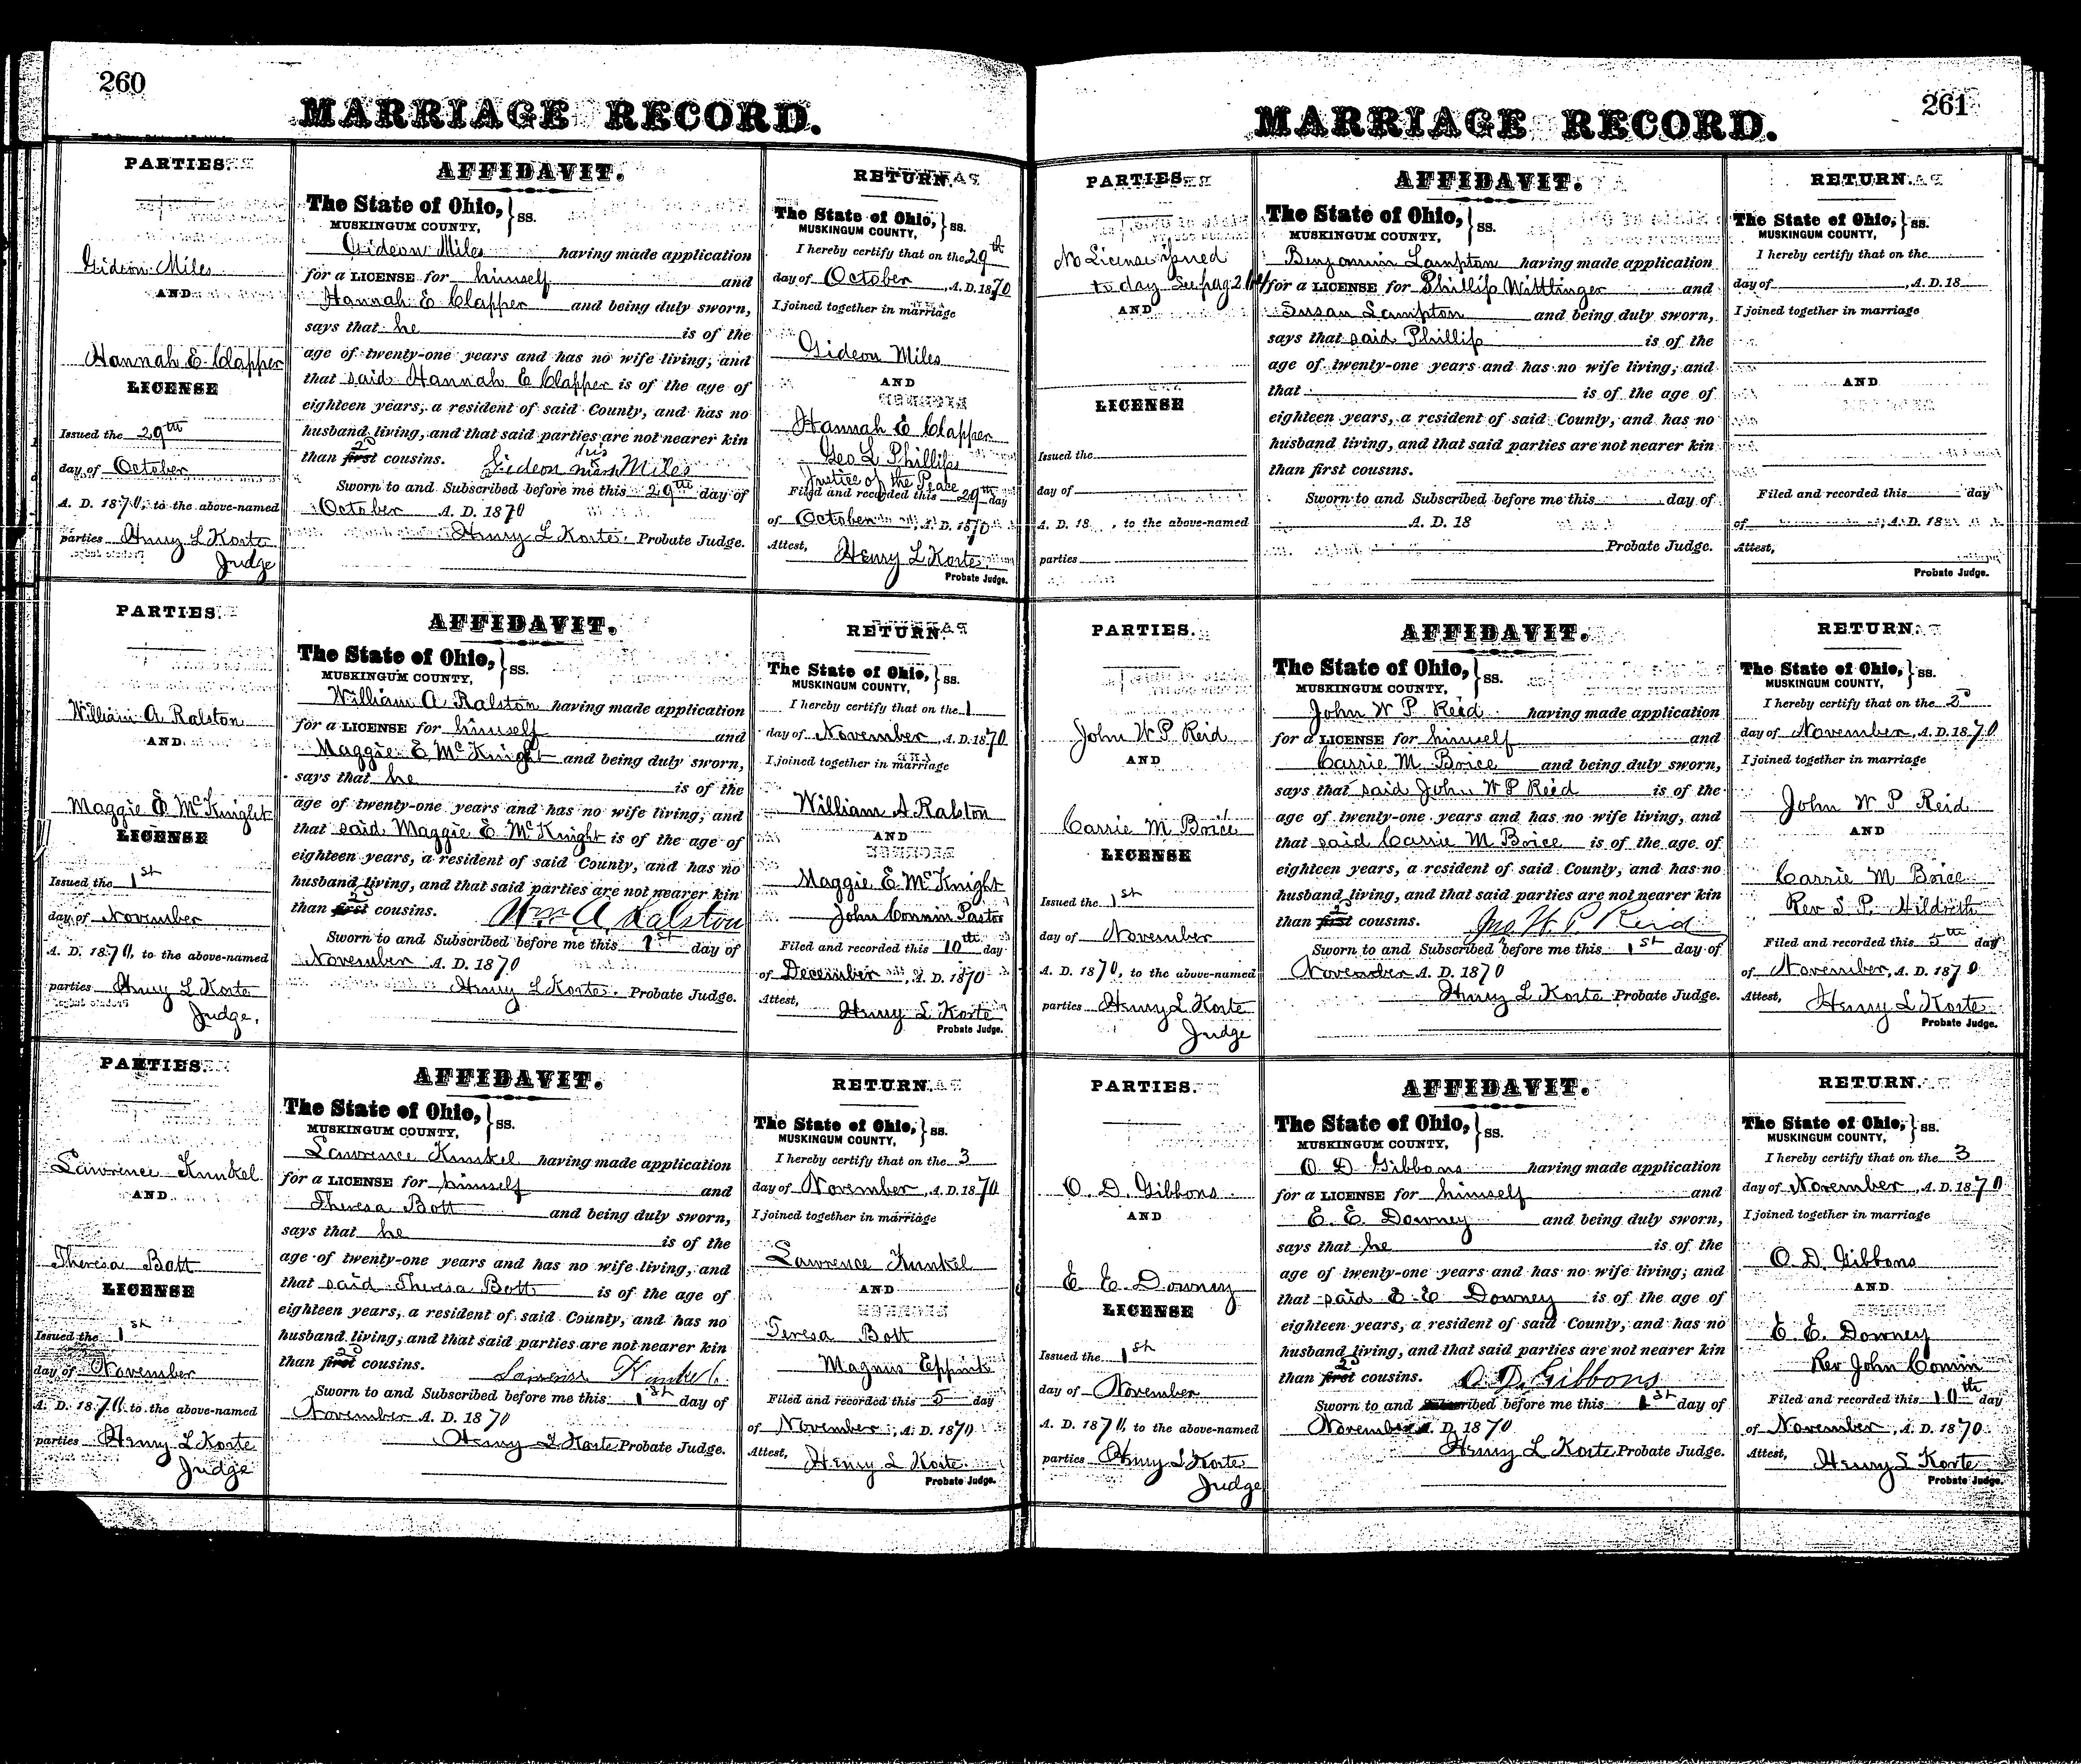 260
MARRIAGE RECORD.
PARTIES.
Gideon Miles
AND
Hannah E. Clapper
LICENSE
Issued the 29th
day of October
A. D. 1870, to the above-named
parties Henry L Korte
Judge
AFFIDAVIT.
The State of Ohio, } ss.
MUSKINGUM COUNTY,
Gideon Miles having made application
for a LICENSE for himself and
Hannah E Clapper and being duly sworn,
says that he is of the
age of twenty-one years and has no wife living; and
that said Hannah E Clapper is of the age of
eighteen years, a resident of said County, and has no
husband living, and that said parties are not nearer kin
than first cousins. his
Gideon mark Miles
Sworn to and Subscribed before me this 29th day of
October A. D. 1870
Henry L Korte. Probate Judge.
RETURN.
The State of Ohio, } ss.
MUSKINGUM COUNTY,
I hereby certify that on the 29th
day of October, A. D. 1870
I joined together in marriage
Gideon Miles
AND
Hannah E Clapper
Geo L Phillips
Justice of the Peace
Filed and recorded this 29th day
of October, A. D. 1870
Attest,
Henry L Korte
Probate Judge.
PARTIES.
William A Ralston
AND
Maggie E McKnight
LICENSE
Issued the 1st
day of November
A. D. 1870, to the above-named
parties Henry L Korte
Judge,
AFFIDAVIT.
The State of Ohio, } ss.
MUSKINGUM COUNTY,
William A Ralston having made application
for a LICENSE for himself and
Maggie E McKnight and being duly sworn,
says that he is of the
age of twenty-one years and has no wife living; and
that said Maggie E McKnight is of the age of
eighteen years, a resident of said County, and has no
husband living, and that said parties are not nearer kin
than first cousins. Wm A Ralston
Sworn to and Subscribed before me this 1st day of
November A. D. 1870
Henry L Korte. Probate Judge.
RETURN.
The State of Ohio, } ss.
MUSKINGUM COUNTY,
I hereby certify that on the 1
day of November, A. D. 1870
I joined together in marriage
William A Ralston
AND
Maggie E McKnight
John Comin Pastor
Filed and recorded this 10th day
of December, A. D. 1870
Attest,
Henry L Korte
Probate Judge.
PARTIES.
Lawrence Kunkel
AND
Theresa Bott
LICENSE
Issued the 1st
day of November
A. D. 1870 to the above-named
parties Henry L Korte
Judge
AFFIDAVIT.
The State of Ohio, } ss.
MUSKINGUM COUNTY,
Lawrence Kunkel having made application
for a LICENSE for himself and
Theresa Bott and being duly sworn,
says that he is of the
age of twenty-one years and has no wife living, and
that said Theresa Bott is of the age of
eighteen years, a resident of said County, and has no
husband living; and that said parties are not nearer kin
than first cousins.
Sworn to and Subscribed before me this 1st day of
November A. D. 1870
Henry L Korte Probate Judge.
RETURN.
The State of Ohio, } ss.
MUSKINGUM COUNTY,
I hereby certify that on the 3
day of November, A. D. 1870
I joined together in marriage
Lawrence Kunkel
AND
Teresa Bott
Magnus Eppink
Filed and recorded this 5 day
of November, A. D. 1870
Attest,
Henry L Korte
Probate Judge.
261
MARRIAGE RECORD.
PARTIES.
No License issued
to day See page 264
AND
LICENSE
Issued the
day of
A. D. 18 , to the above-named
parties
AFFIDAVIT.
The State of Ohio, } ss.
MUSKINGUM COUNTY,
Benjamin Lampton having made application
for a LICENSE for Phillip Wittlinger and
Susan Lampton and being duly sworn,
says that said Phillip is of the
age of twenty-one years and has no wife living; and
that is of the age of
eighteen years, a resident of said County, and has no
husband living, and that said parties are not nearer kin
than first cousins.
Sworn to and Subscribed before me this day of
A. D. 18
Probate Judge.
RETURN.
The State of Ohio, } ss.
MUSKINGUM COUNTY,
I hereby certify that on the
day of , A. D. 18
I joined together in marriage
AND
Filed and recorded this day
of , A. D. 18
Attest,
Probate Judge.
PARTIES.
John W P Reid
AND
Carrie M Boice
LICENSE
Issued the 1st
day of November
A. D. 1870, to the above-named
parties Henry L Korte
Judge
AFFIDAVIT.
The State of Ohio, } ss.
MUSKINGUM COUNTY,
John W P Reid having made application
for a LICENSE for himself and
Carrie M Boice and being duly sworn,
says that said John W P Reid is of the
age of twenty-one years and has no wife living, and
that said Carrie M Boice is of the age of
eighteen years, a resident of said County, and has no
husband living, and that said parties are not nearer kin
than first cousins. Jno W. P. Reid
Sworn to and Subscribed before me this 1st day of
November A. D. 1870
Henry L Korte Probate Judge.
RETURN.
The State of Ohio, } ss.
MUSKINGUM COUNTY,
I hereby certify that on the 2d
day of November, A. D. 1870
I joined together in marriage
John W P Reid
AND
Carrie M Boice
Rev S. P. Hildreth
Filed and recorded this 5th day
of November, A. D. 1870
Attest,
Henry L Korte
Probate Judge.
PARTIES.
O. D. Gibbons
AND
E E Downey
LICENSE
Issued the 1st
day of November
A. D. 1870, to the above-named
parties Henry L Korte
Judge
AFFIDAVIT.
The State of Ohio, } ss.
MUSKINGUM COUNTY,
O D Gibbons having made application
for a LICENSE for himself and
E. E. Downey and being duly sworn,
says that he is of the
age of twenty-one years and has no wife living; and
that said E E Downey is of the age of
eighteen years, a resident of said County, and has no
husband living, and that said parties are not nearer kin
than first cousins. O. D. Gibbons
Sworn to and Subscribed before me this 1st day of
November A. D. 1870
Henry L Korte Probate Judge.
RETURN.
The State of Ohio, } ss.
MUSKINGUM COUNTY,
I hereby certify that on the 3
day of November, A. D. 1870
I joined together in marriage
O. D. Gibbons
AND
E. E. Downey
Rev John Comin
Filed and recorded this 10th day
of November, A. D. 1870
Attest,
Henry L Korte
Probate Judge.